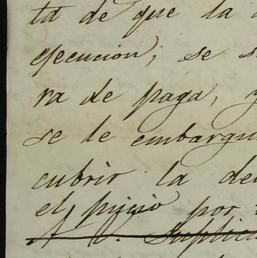 ta de que la
ejecucion, se s
ra de paga, y
se le embargu
cubrir la de
el juicio por
A V. Suplic